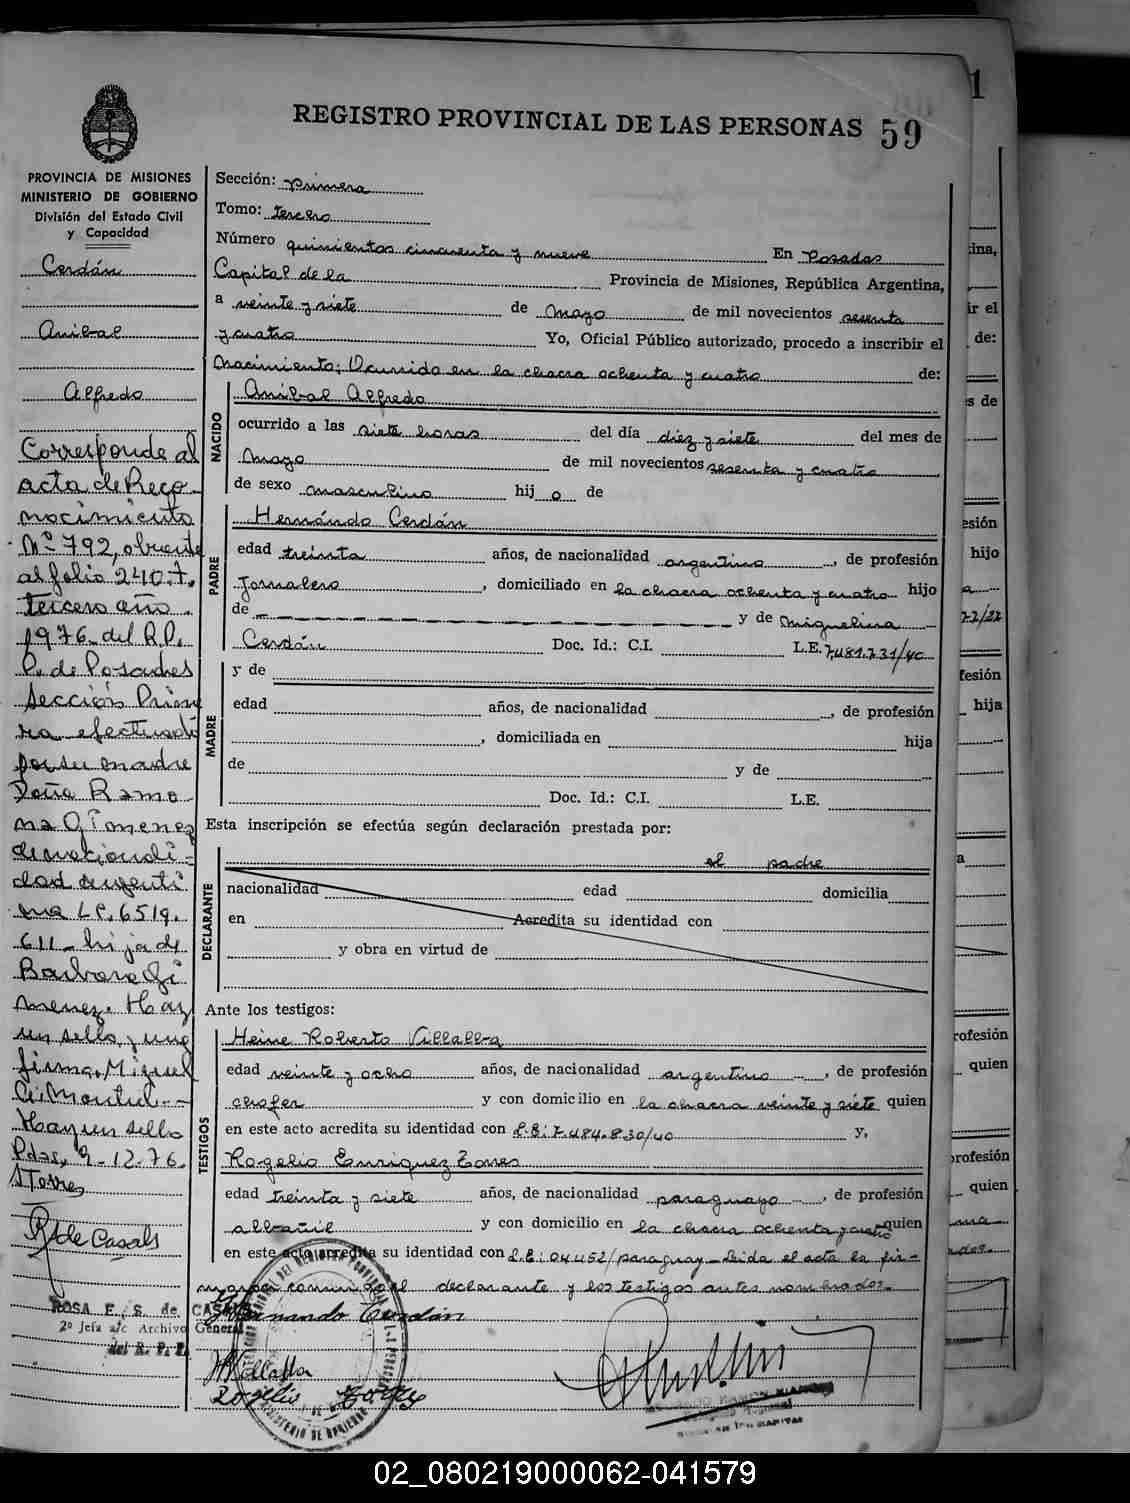 REGISTRO PROVINCIAL DE LAS PERSONAS 59
PROVINCIA DE MISIONES
MINISTERIO DE GOBIERNO
División del Estado Civil
y Capacidad
Cerdán
Anibal
Alfredo
Corresponde al
acta de Reco-
nocimiento
Nº 792, obrante
al folio 240. T.
tercero año
1976 del R.P.
P. de Posadas
Sección Prime
ra efectuado
por su madre
Doña Ramo
na Gimenez
de nacionali-
dad argenti
na LC. 6519.
611 - hija de
Barbara Gi
menez. Hay
un sello y una
firma. Miguel
Hay un sello
Pdas, 9-12-76.
STorres
RS de Casals
ROSA E. S. de CASALS
2º Jefa a/c Archivo General
del R. P. P.
Sección: Primera
Tomo: tercero
Número quinientos cincuenta y nueve En Posadas
Capital de la Provincia de Misiones, República Argentina,
a veinte y siete de Mayo de mil novecientos sesenta
y cuatro Yo, Oficial Público autorizado, procedo a inscribir el
Nacimiento: Ocurrido en la chacra ochenta y cuatro de:
NACIDO
Anibal Alfredo
ocurrido a las siete horas del día diez y siete del mes de
Mayo de mil novecientos sesenta y cuatro
de sexo masculino hij o de
PADRE
Hernándo Cerdán
edad treinta años, de nacionalidad argentino, de profesión
Jornalero, domiciliado en la chacra ochenta y cuatro hijo
de - - - - y de Miguelina
Cerdán Doc. Id.: C.I. L.E. 7.481.731/40
MADRE
y de
edad años, de nacionalidad , de profesión
, domiciliada en hija
de y de
Doc. Id.: C.I. L.E.
Esta inscripción se efectúa según declaración prestada por:
el padre
DECLARANTE
nacionalidad edad domicilia
en Acredita su identidad con
y obra en virtud de
Ante los testigos:
TESTIGOS
Heine Roberto Villalba
edad veinte y ocho años, de nacionalidad argentino, de profesión
chofer y con domicilio en la chacra veinte y siete quien
en este acto acredita su identidad con L.E: 7.484.830/40 y,
Rogelio Enriquez Torres
edad treinta y siete años, de nacionalidad paraguayo, de profesión
albañil y con domicilio en la chacra ochenta y cuatro quien
en este acto acredita su identidad con L.E: 04452/paraguay - Leida el acta la fir-
man conmigo el declarante y los testigos antes nombrados.
Hernando Cerdán
HVillalba
Rogelio Torres
02_080219000062-041579